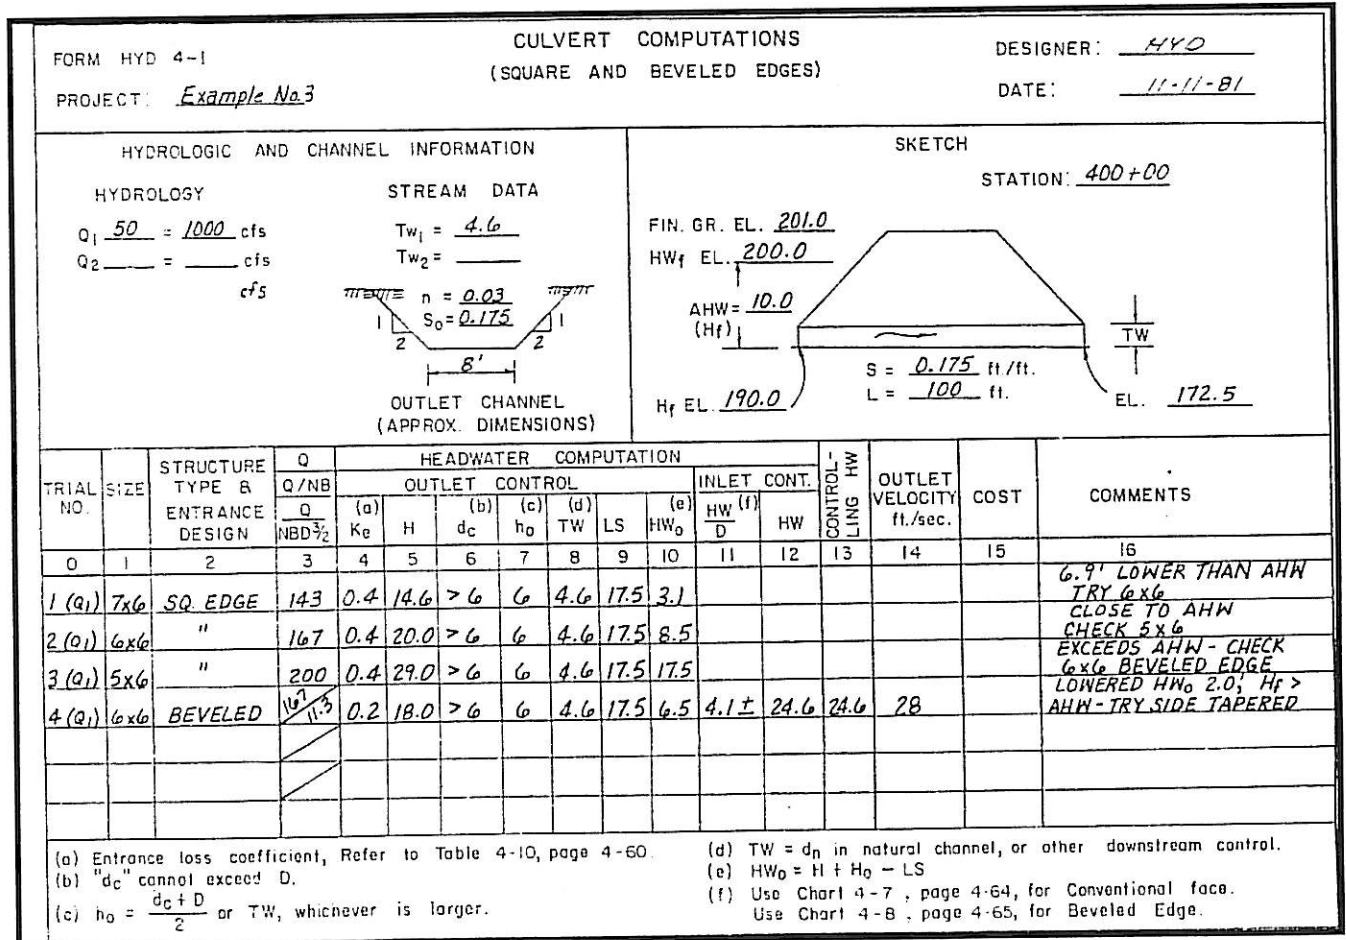 FORM HYD 4-1
CULVERT COMPUTATIONS
(SQUARE AND BEVELED EDGES)
DESIGNER: HYD
PROJECT: Example No.3
DATE: 11-11-81
HYDROLOGIC AND CHANNEL INFORMATION
HYDROLOGY
STREAM DATA
Q1 50 = 1000 cfs
Tw1 = 4.6
Q2 ____ = ____ cfs
Tw2 = ____
cfs
n = 0.03
So = 0.175
1
2
1
2
8'
OUTLET CHANNEL
(APPROX. DIMENSIONS)
SKETCH
STATION: 400+00
FIN. GR. EL. 201.0
HWf EL. 200.0
AHW = 10.0
(Hf)
TW
S = 0.175 ft./ft.
L = 100 ft.
Hf EL. 190.0
EL. 172.5
TRIAL NO.
SIZE
STRUCTURE TYPE & ENTRANCE DESIGN
Q
Q/NB
Q/NBD 3/2
HEADWATER COMPUTATION
OUTLET CONTROL
(a) Ke
H
(b) dc
(c) ho
(d) TW
LS
(e) HWo
INLET CONT.
HW/D (f)
HW
CONTROL-LING HW
OUTLET VELOCITY ft./sec.
COST
COMMENTS
0 1 2 3 4 5 6 7 8 9 10 11 12 13 14 15 16
1 (Q1) 7x6 SQ. EDGE 143 0.4 14.6 >6 6 4.6 17.5 3.1 6.9' LOWER THAN AHW TRY 6x6
2 (Q1) 6x6 " 167 0.4 20.0 >6 6 4.6 17.5 8.5 CLOSE TO AHW CHECK 5x6
3 (Q1) 5x6 " 200 0.4 29.0 >6 6 4.6 17.5 17.5 EXCEEDS AHW - CHECK 6x6 BEVELED EDGE
4 (Q1) 6x6 BEVELED 167/11.3 0.2 18.0 >6 6 4.6 17.5 6.5 4.1± 24.6 24.6 28 LOWERED HWo 2.0', Hf > AHW - TRY SIDE TAPERED
(a) Entrance loss coefficient, Refer to Table 4-10, page 4-60.
(b) "dc" cannot exceed D.
(c) ho = dc + D / 2 or TW, whichever is larger.
(d) TW = dn in natural channel, or other downstream control.
(e) HWo = H + Ho - LS
(f) Use Chart 4-7, page 4-64, for Conventional face.
Use Chart 4-8, page 4-65, for Beveled Edge.